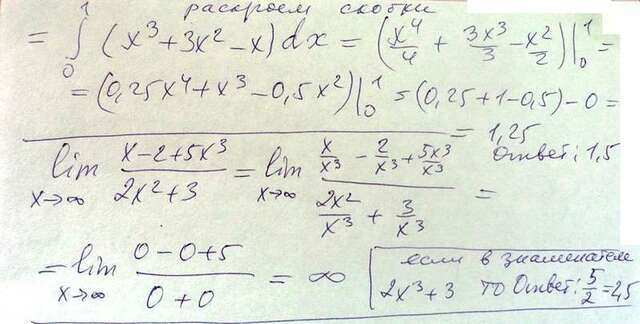 раскроем скобки
= ∫₀¹ (x³+3x²-x)dx = (x⁴/4 + 3x³/3 - x²/2)|₀¹ =
= (0,25x⁴+x³-0,5x²)|₀¹ = (0,25+1-0,5)-0 =
= 1,25
Ответ: 1,5
lim x→∞ (x-2+5x³)/(2x²+3) = lim x→∞ (x/x³ - 2/x³ + 5x³/x³)/(2x²/x³ + 3/x³) =
= lim x→∞ (0-0+5)/(0+0) = ∞
если в знаменателе
2x³+3 то Ответ: 5/2=2,5